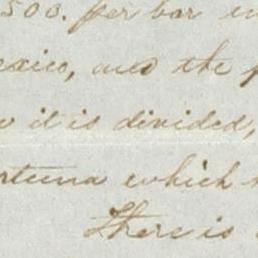 500. per bar in
exico, and the
it is divided,
rtuna which
There is